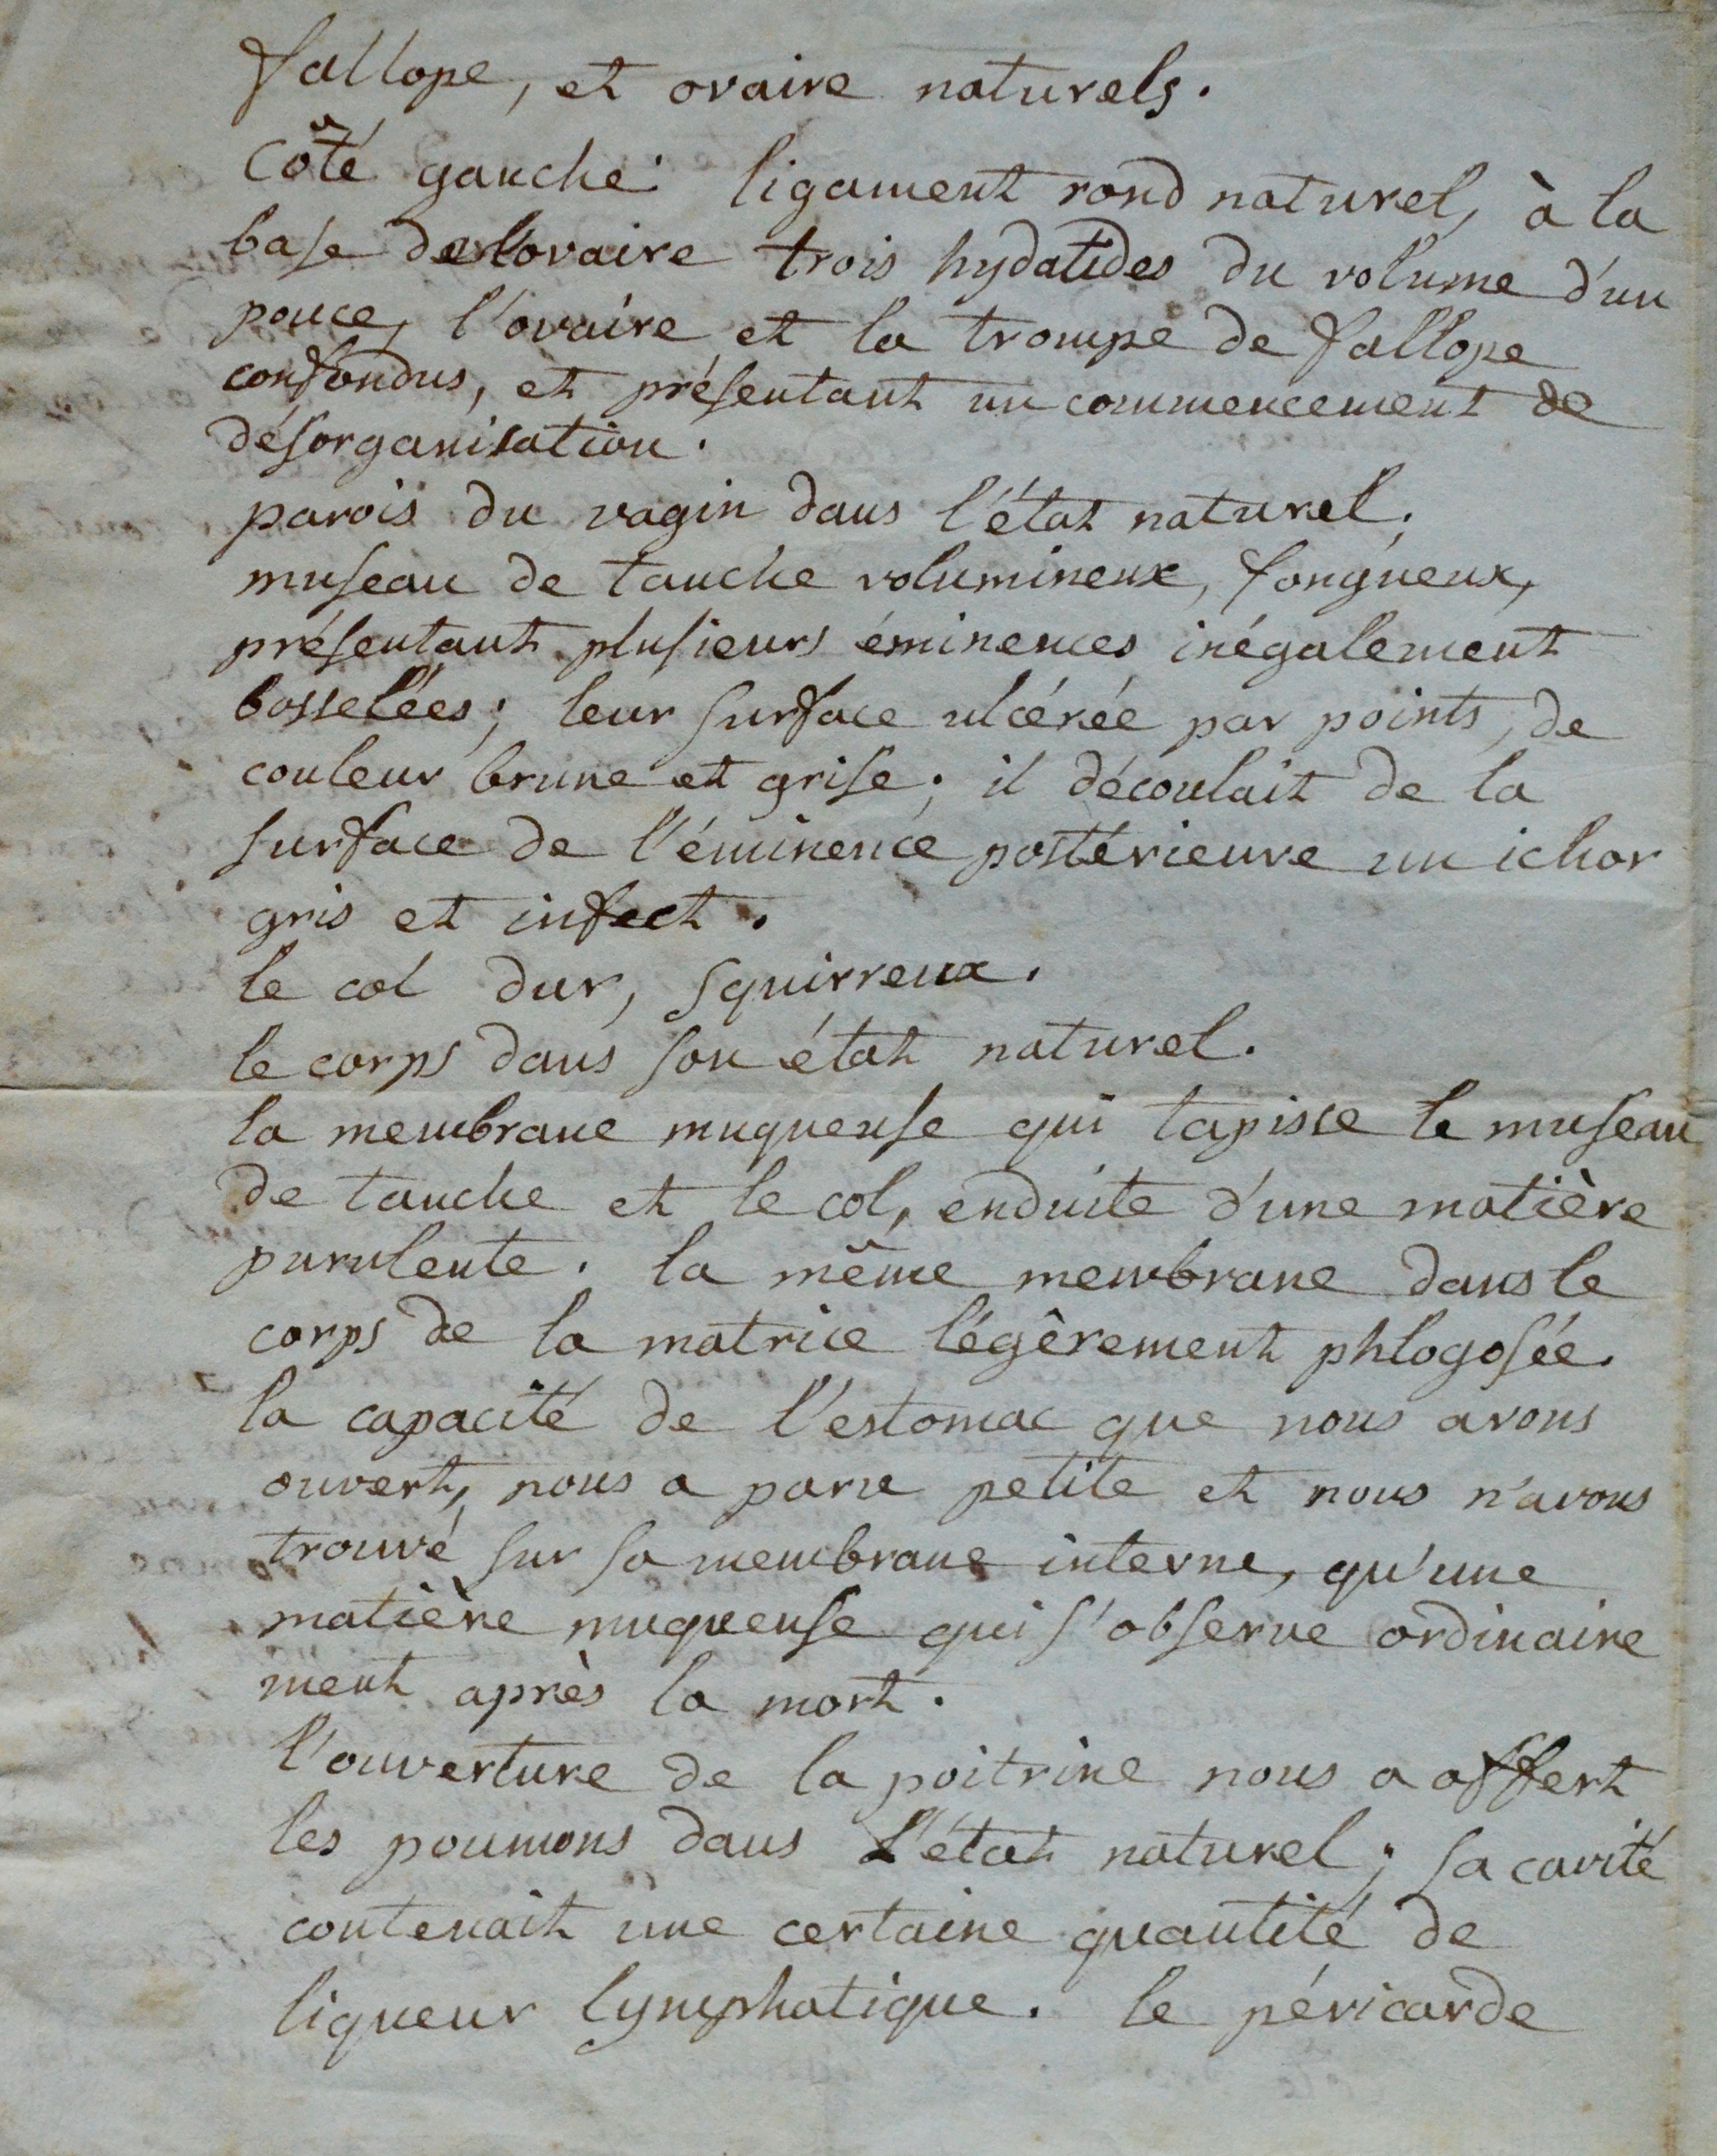 fallope, et ovaire naturels.
Côté gauche: ligament rond naturel, à la
base de l'ovaire trois hydatides du volume d'un
pouce, l'ovaire et la trompe de fallope
confondus, et présentant un commencement de
désorganisation.
parois du vagin dans l'état naturel.
museau de tanche volumineux, fongueux,
présentant plusieurs éminences inégalement
bosselées; leur surface ulcérée par points, de
couleur brune et grise; il découlait de la
surface de l'éminence postérieure un ichor
gris et infect.
le col dur, squirreux.
le corps dans son état naturel.
la membrane muqueuse qui tapisse le museau
de tanche et le col, enduite d'une matière
purulente. la même membrane dans le
corps de la matrice légèrement phlogosée.
la capacité de l'estomac que nous avons
ouvert, nous a paru petite et nous n'avons
trouvé sur sa membrane interne, qu'une
matière muqueuse qui s'observe ordinaire
ment après la mort.
l'ouverture de la poitrine nous a offert
les poumons dans l'état naturel; sa cavité
contenait une certaine quantité de
liqueur lymphatique. le péricarde